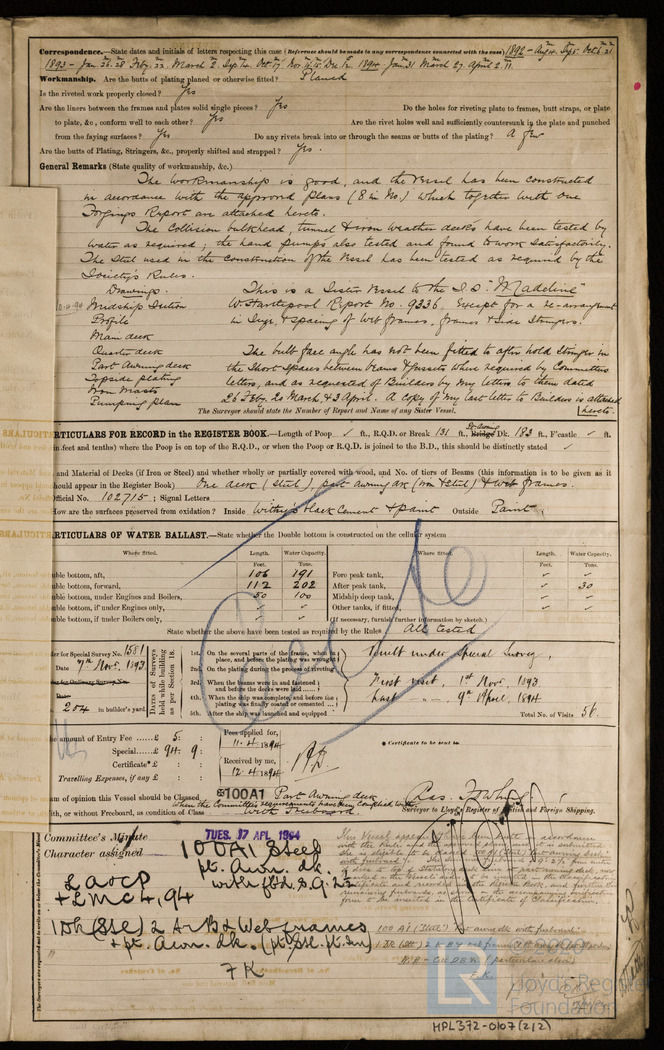 Correspondence.—State dates and initials of letters respecting this case (Reference should be made to any correspondence connected with the case) 1892 - Aug 4. Sep 5. Oct 6. 21
1893 - Jan 26. 28 Feby. 22. March 2. Sep 14. Oct 17. Nov 4. 15. Dec 12. 1894 Jan 31 March 27. April 2. 11.
Workmanship. Are the butts of plating planed or otherwise fitted? Planed
Is the riveted work properly closed? Yes
Are the liners between the frames and plates solid single pieces? Yes Do the holes for riveting plate to frames, butt straps, or plate
to plate, &c., conform well to each other? Yes Are the rivet holes well and sufficiently countersunk in the plate and punched
from the faying surfaces? Yes Do any rivets break into or through the seams or butts of the plating? A few
Are the butts of Plating, Stringers, &c., properly shifted and strapped? Yes.
General Remarks (State quality of workmanship, &c.)
The Workmanship is good, and the Vessel has been constructed
in accordance with the approved plans (8 in No.) which together with one
Forgings Report are attached hereto.
The Collision bulkhead, tunnel & iron weather decks have been tested by
water as required; the hand pumps also tested and found to work satisfactorily.
The Steel used in the construction of the Vessel has been tested as required by the
Society's Rules.
Drawings. This is a Sister Vessel to the S.S. "Madeline"
Midship Section W. Hartlepool Report No. 9336, Except for a re-arrangement
Profile in Size, & spacing of web frames, frames & side stringers.
Main deck
Quarter deck The bulb face angle has not been fitted to after hold stringer in
Part Awning deck the short spaces between beams & gussets where required by Committee's
Topside plating letters, and as requested of Builders by my letters to them dated
Iron Masts 26 Feby. 20 March & 3 April. A copy of my last letter to Builders is attached
Pumping plan hereto.
The Surveyor should state the Number of Report and Name of any Sister Vessel.
PARTICULARS FOR RECORD in the REGISTER BOOK.—Length of Poop ✓ ft., R.Q.D. or Break 131 ft., Bridge Dk. 183 ft., F'castle ✓ ft.
(in feet and tenths) where the Poop is on top of the R.Q.D., or when the Poop or R.Q.D. is joined to the B.D., this should be distinctly stated ✓
and Material of Decks (if Iron or Steel) and whether wholly or partially covered with wood, and No. of tiers of Beams (this information is to be given as it
should appear in the Register Book) One deck (Steel), part awning dk (iron & steel) & web frames.
Official No. 102715; Signal Letters
How are the surfaces preserved from oxidation? Inside Withy's black Cement & paint Outside Paint
PARTICULARS OF WATER BALLAST.—State whether the Double bottom is constructed on the cellular system
Where fitted. Length. Water Capacity. Where fitted. Length. Water Capacity.
Feet. Tons. Feet. Tons.
Double bottom, aft, 106 191 Fore peak tank, ✓ ✓
Double bottom, forward, 112 202 After peak tank, ✓ 30
Double bottom, under Engines and Boilers, 50 100 Midship deep tank, ✓ ✓
Double bottom, if under Engines only, ✓ ✓ Other tanks, if fitted, ✓ ✓
Double bottom, if under Boilers only, ✓ ✓ (If necessary, furnish further information by sketch.)
State whether the above have been tested as required by the Rules All tested
Order for Special Survey No. 1581
Date 7th Nov. 1893
204 in builder's yard
Dates of Surveys held while building as per Section 18.
1st. On the several parts of the frame, when in place, and before the plating was wrought
2nd. On the plating during the process of riveting
3rd. When the beams were in and fastened and before the decks were laid
4th. When the ship was complete, and before the plating was finally coated or cemented
5th. After the ship was launched and equipped
Built under Special Survey,
First visit, 1st Nov. 1893
Last " 9th April, 1894
Total No. of Visits 56.
The amount of Entry Fee £ 5 : Fees applied for, 11.4.1894
Special £ 94. 9 : Received by me, 12.4.1894
Certificate* £ :
Travelling Expenses, if any £ :
* Certificate to be sent to
I am of opinion this Vessel should be Classed ✠100A1 Part Awning deck
When the Committee's requirements have been complied with
With, or without Freeboard, as condition of Class With Freeboard
Surveyor to Lloyd's Register of British and Foreign Shipping.
Committee's Minute TUES. 17 APL 1894
Character assigned 100A1 Steel
pt. Awn. dk.
with fbd.
L A & C P
+ L M C 4.94
1 Dk (Stl) 2 Web frames
+ pt. Awn. dk. (pt. Stl. pt. Irn)
7 K
LR
Lloyd's Register
Foundation
HPL372-0107(2/2)